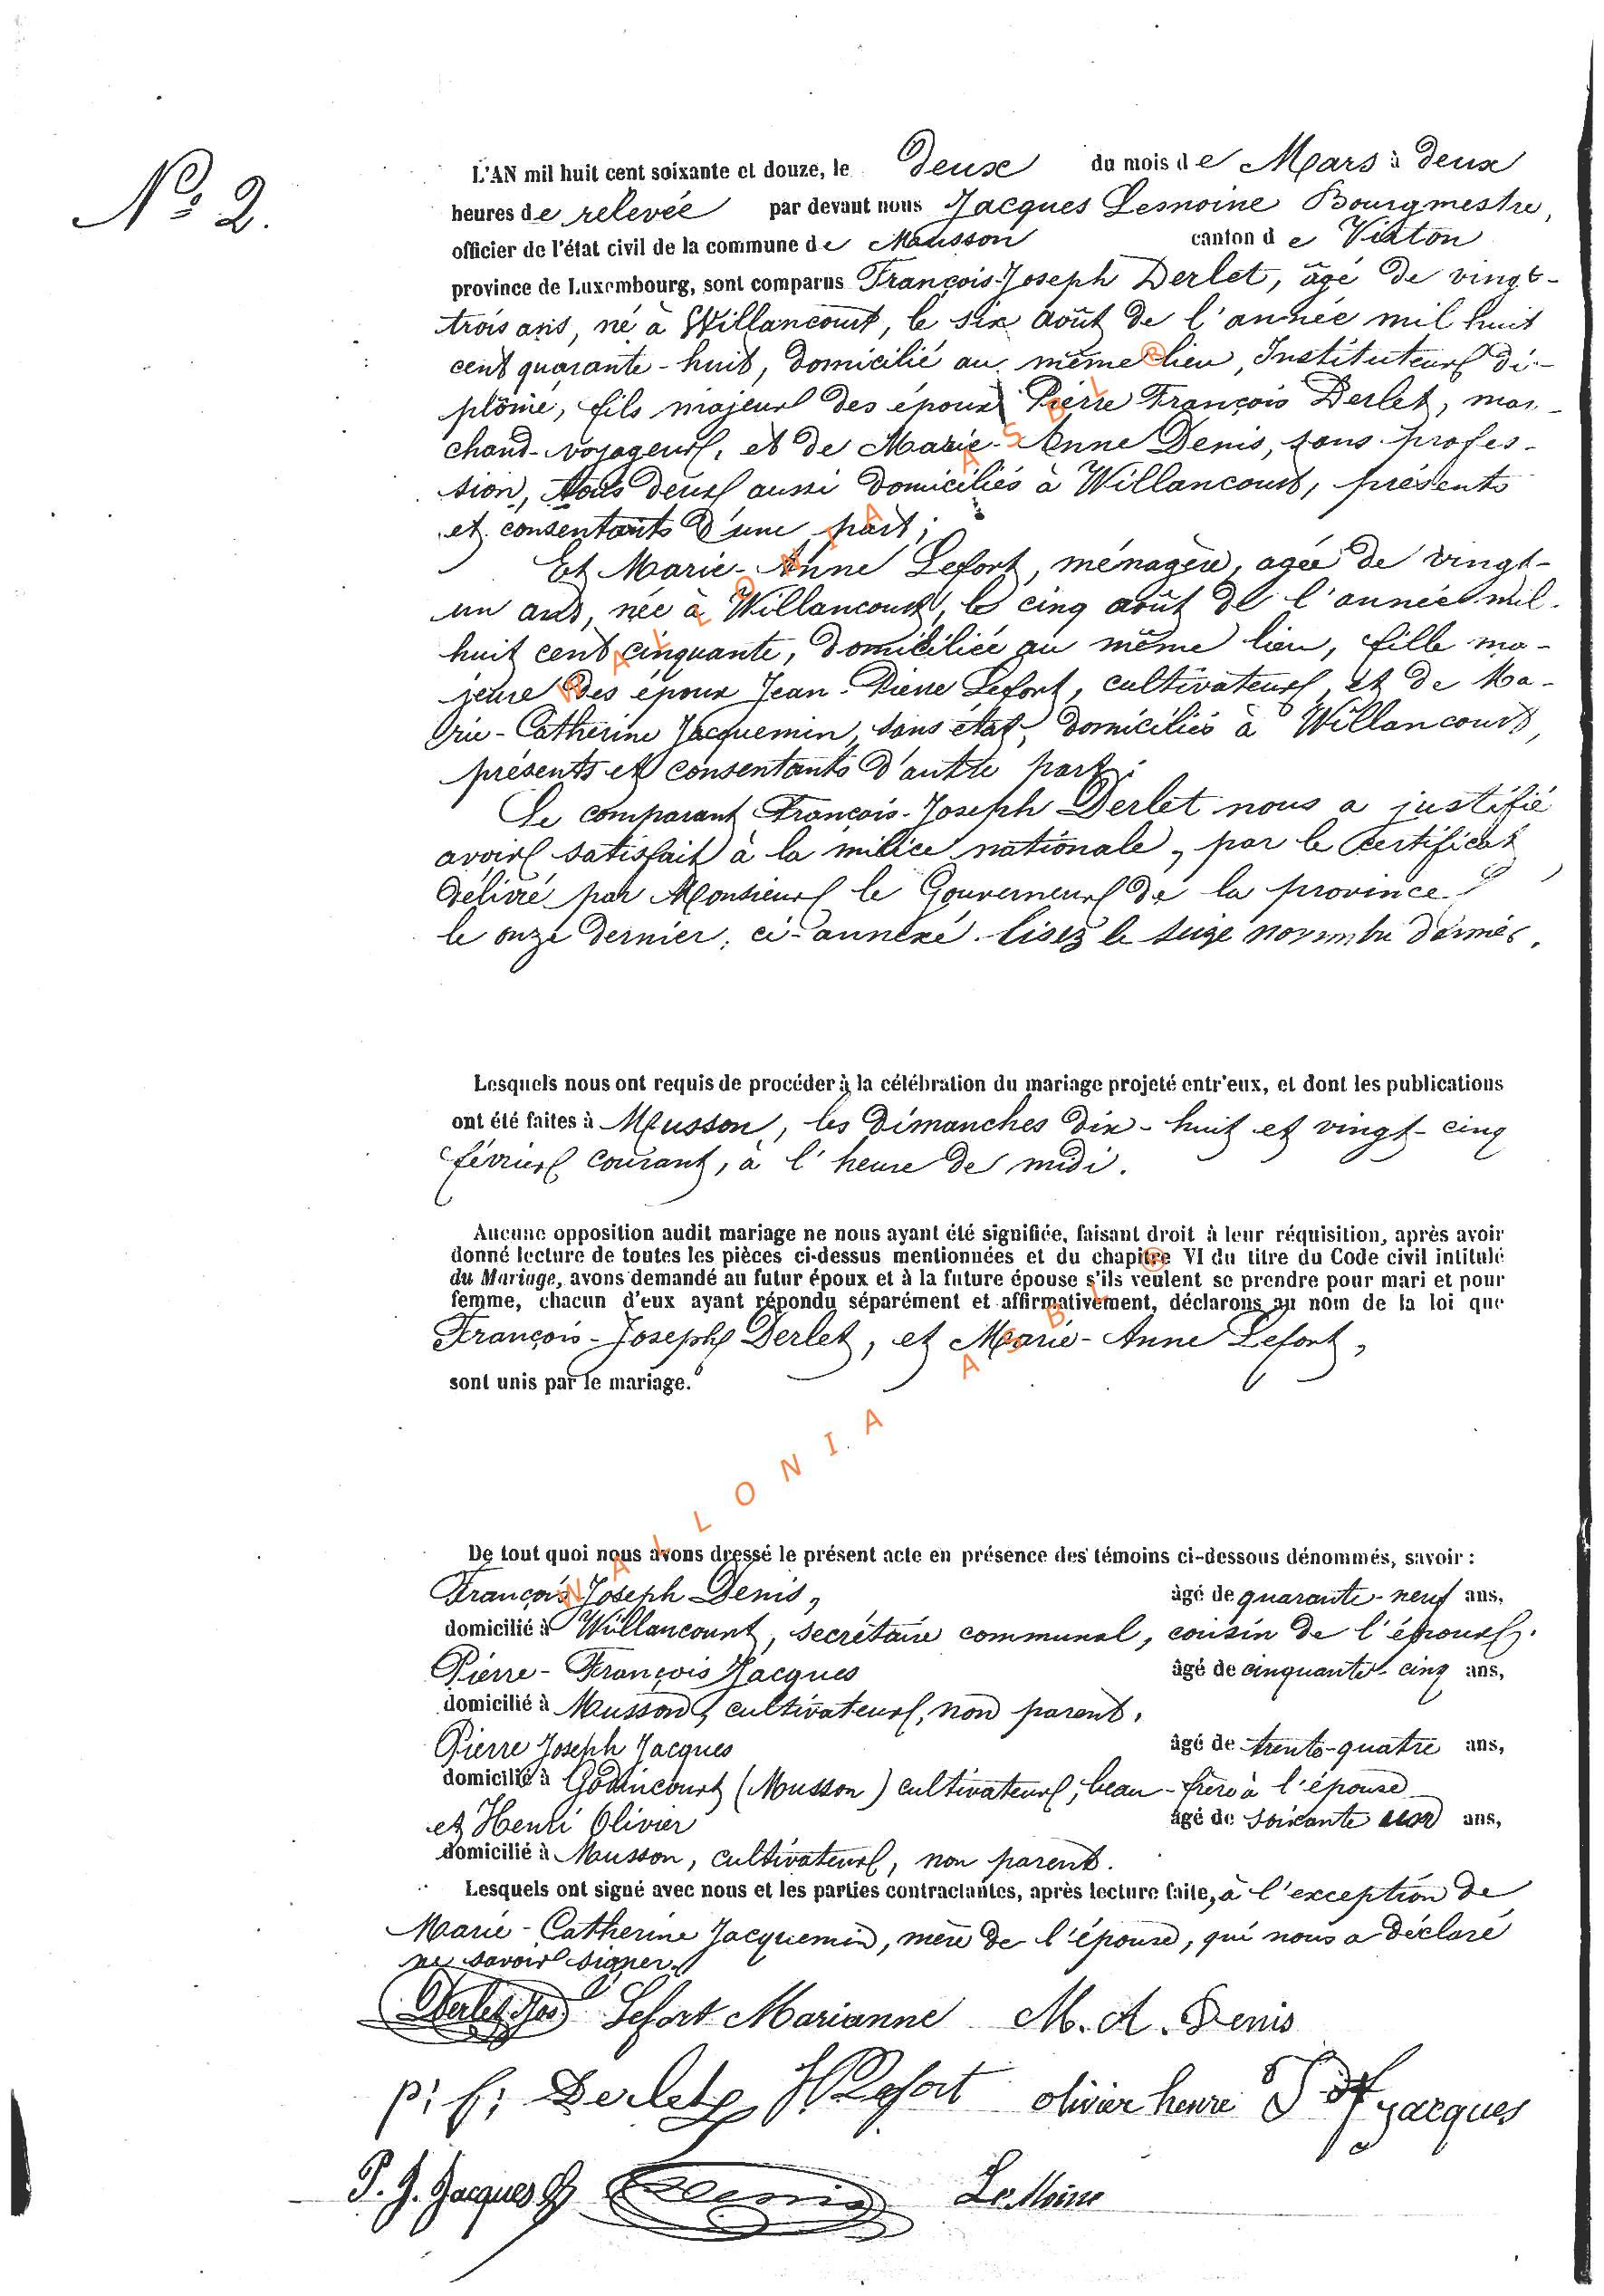 N° 2.
L'AN mil huit cent soixante et douze, le deux du mois de Mars à deux
heures de relevée par devant nous Jacques Lemoine Bourgmestre,
officier de l'état civil de la commune de Musson canton de Virton
province de Luxembourg, sont comparus François-Joseph Derlet, âgé de vingt-
trois ans, né à Willancourt, le six août de l'année mil huit
cent quarante-huit, domicilié au même lieu, Instituteur di-
plômé, fils majeur des époux Pierre François Derlet, mar-
chand-voyageur, et de Marie-Anne Denis, sans profes-
sion, tous deux aussi domiciliés à Willancourt, présents
et consentants d'une part;
Et Marie-Anne Lefort, ménagère, agée de vingt-
un ans, née à Willancourt, le cinq août de l'année mil
huit cent cinquante, domiciliée au même lieu, fille ma-
jeure des époux Jean-Pierre Lefort, cultivateur, et de Ma-
rie-Catherine Jacquemin, sans état, domiciliés à Willancourt,
présents et consentants d'autre part;
Le comparant François-Joseph Derlet nous a justifié
avoir satisfait à la milice nationale, par le certificat
délivré par Monsieur le Gouverneur de la province
le onze dernier, ci-annexé. lisez le seize novembre dernier.
Lesquels nous ont requis de procéder à la célébration du mariage projeté entr'eux, et dont les publications
ont été faites à Musson, les dimanches dix-huit et vingt-cinq
février courant, à l'heure de midi.
Aucune opposition audit mariage ne nous ayant été signifiée, faisant droit à leur réquisition, après avoir
donné lecture de toutes les pièces ci-dessus mentionnées et du chapitre VI du titre du Code civil intitulé
du Mariage, avons demandé au futur époux et à la future épouse s'ils veulent se prendre pour mari et pour
femme, chacun d'eux ayant répondu séparément et affirmativement, déclarons au nom de la loi que
François-Joseph Derlet, et Marie-Anne Lefort,
sont unis par le mariage.
WALLONIA ASBL ®
De tout quoi nous avons dressé le présent acte en présence des témoins ci-dessous dénommés, savoir :
François Joseph Denis, âgé de quarante-neuf ans,
domicilié à Willancourt, secrétaire communal, cousin de l'époux.
Pierre-François Jacques âgé de cinquante-cinq ans,
domicilié à Musson, cultivateur, non parent.
Pierre Joseph Jacques âgé de trente-quatre ans,
domicilié à Godincourt (Musson) cultivateur, beau-frère à l'épouse
et Henri Olivier âgé de soixante ans,
domicilié à Musson, cultivateur, non parent.
Lesquels ont signé avec nous et les parties contractantes, après lecture faite, à l'exception de
Marie-Catherine Jacquemin, mère de l'épouse, qui nous a déclaré
ne savoir signer.
Derlet Jos Lefort Marianne M. A. Denis
p: f: Derlet Lefort olivier henri jacques
P. J. Jacques Denis LeMoine